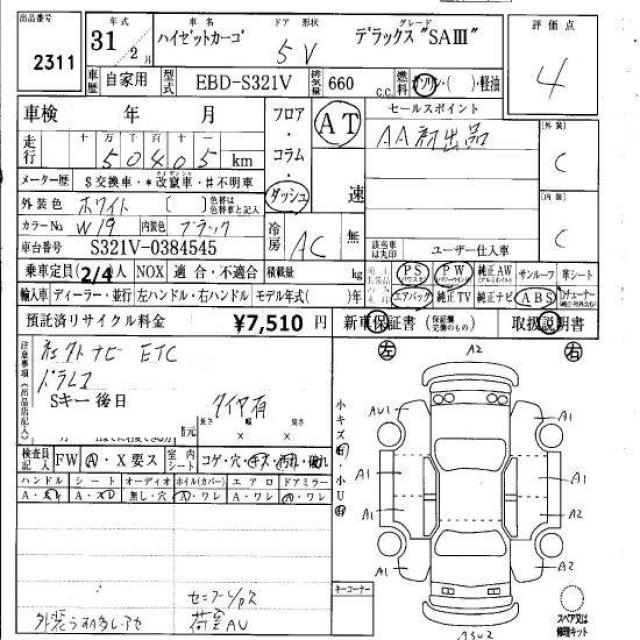 出品番号 2311
年式 31年 2月
車名 ハイゼットカーゴ
ドア 形状 5V
グレード デラックス"SAⅢ"
評価点 4
車歴 自家用
型式 EBD-S321V
排気量 660 C.C.
燃料 ガソリン・( )・軽油
車検 年 月
走行 十 万 千 百 十 一
50405 km
メーター歴 $交換車・*改竄車・#不明車
外装色 ホワイト [ ] 色替は色替車と記入
カラーNo W19 内装色 ブラック
車台番号 S321V-0384545
フロア・コラム・ダッシュ
AT
速
冷房 AC 無
セールスポイント
AA初出品
[外装] C
[内装] C
該当名は丸印 ユーザー仕入車
乗車定員 2/4人 NOX 適合・不適合 積載量 kg
PS パワステ PW パワーウインド 純正AW (アルミホイル) サンルーフ 革シート
輸入車 ディーラー・並行 左ハンドル・右ハンドル モデル年式( )年
エアバック 純正TV 純正ナビ ABS
預託済リサイクル料金 ¥7,510 円
新車保証書 (保証書完備のもの) 取扱説明書
注意事項(出品店記入)
社外ナビ ETC
ドラレコ
Sキー後日
タイヤ有
諸元 長さ × 幅 × 高さ
検査員記入 FW A・X要ス 室内シート コゲ・穴・キズ・汚れ・破れ
ハンドル シート オーディオ ホイル(カバー) エアロ ドアミラー
A・スレ A・スレ 無し・穴 A・ワレ A・ワレ A・ワレ
荷室AU
左 右
小キズ 小U
A2
AU1 A1
A1 A1
A1 A2
A1 A2
キーコーナー
スペア又は修理キット